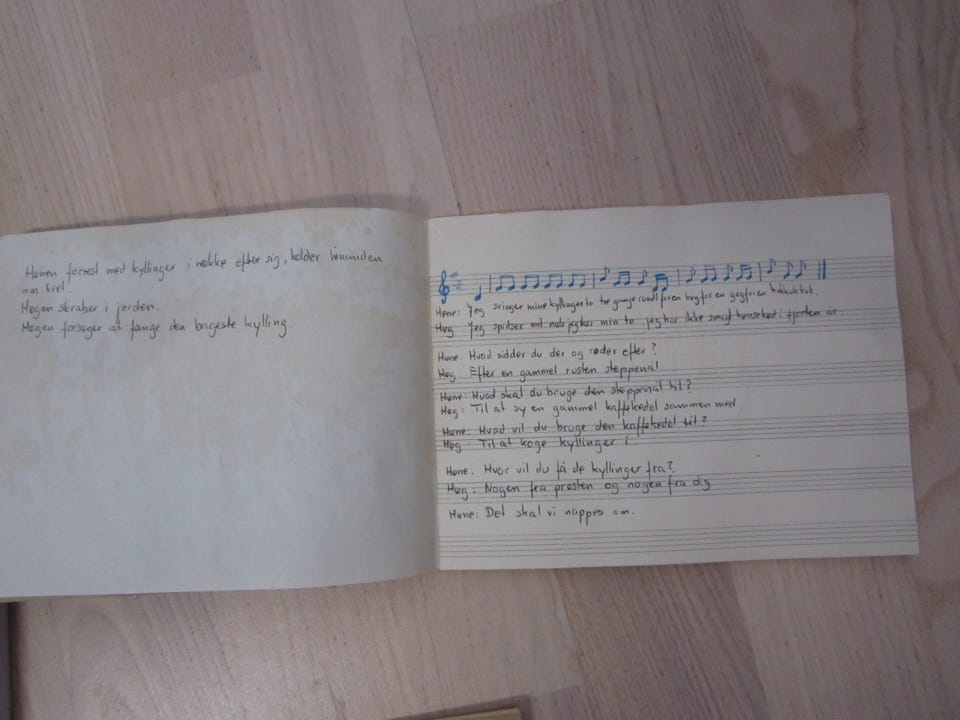 Hønen forrest med kyllinger i række efter sig, holder hinanden
om livet.
Høgen skraber i jorden.
Høgen forsøger at fange den bageste kylling.
Høne: Jeg svinger mine kyllinger to tre gange rundt for en høg for en gøg for en
Høg: Jeg spidser mit næb jeg ker min to jeg har ikke smagt hønsekød i fjorten år.
Høne: Hvad sidder du der og roder efter?
Høg: Efter en gammel rusten stoppenål
Høne: Hvad skal du bruge den stoppenål til?
Høg: Til at sy en gammel kaffekedel sammen med
Høne: Hvad vil du bruge den kaffekedel til?
Høg: Til at koge kyllinger i.
Høne: Hvor vil du få de kyllinger fra?
Høg: Nogen fra præsten og nogen fra dig
Høne: Det skal vi nappes om.